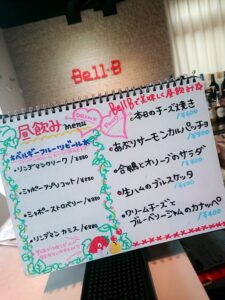 Bell-B
昼飲み menu
DRINK
FOOD
ベルギーフルーツビール
・リンデマンクリーク ¥880
・シャポーアプリコット ¥880
・シャポーストロベリー ¥880
・リンデマンカシス ¥880
Bell Bで美味しく昼飲み
・本日のチーズ焼き
・あぶりサーモンカルパッチョ
・合鴨とオリーブのサラダ
・生ハムのブルスケッタ
・クリームチーズと
ブルーベリージャムのカナッペ